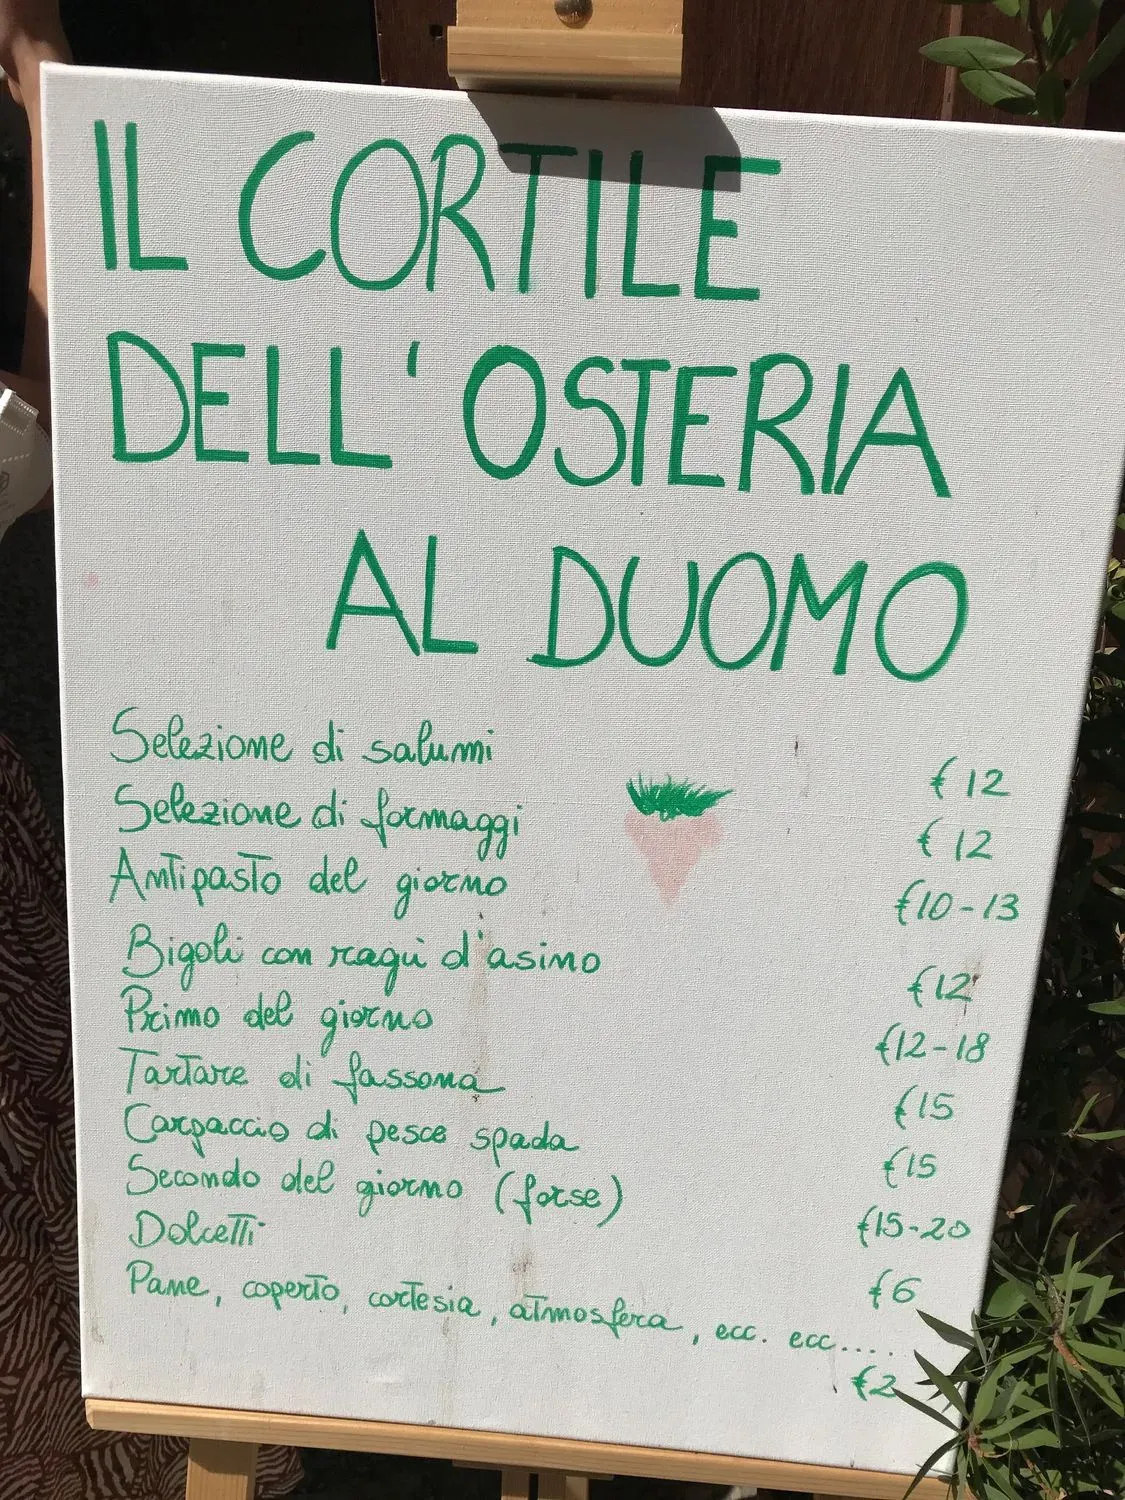 IL CORTILE
DELL'OSTERIA
AL DUOMO
Selezione di salumi €12
Selezione di formaggi €12
Antipasto del giorno €10-13
Bigoli con ragù d'asino €12
Primo del giorno €12-18
Tartare di fassona €15
Carpaccio di pesce spada €15
Secondo del giorno (forse) €15-20
Dolcetti €6
Pane, coperto, cortesia, atmosfera, ecc. ecc....
€2